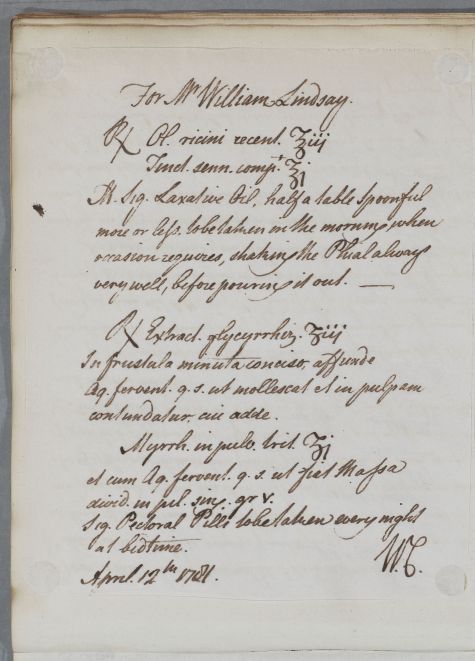 For Mr William Lindsay.
℞ Ol. ricini recent. ℥iij
Tinct. senn. compt. ℥j
M. Sig. Laxative Oil, half a table spoonful
more or less. to be taken in the morning when
occasion requires, shaking the Phial always
very well, before pouring it out. —
℞ Extract. glycyrrhiz. ℥iij
In frustula minuta conciso, affunde
Aq. fervent. q. s. ut mollescat et in pulpam
contundatur, cui adde
Myrrh. in pulv. trit. ℥j
et cum Aq. fervent. q. s. ut fiat Massa
divid. in pil. sing. gr v.
Sig. Pectoral Pills to be taken every night
at bedtime.
April. 12th 1781.
W.C.